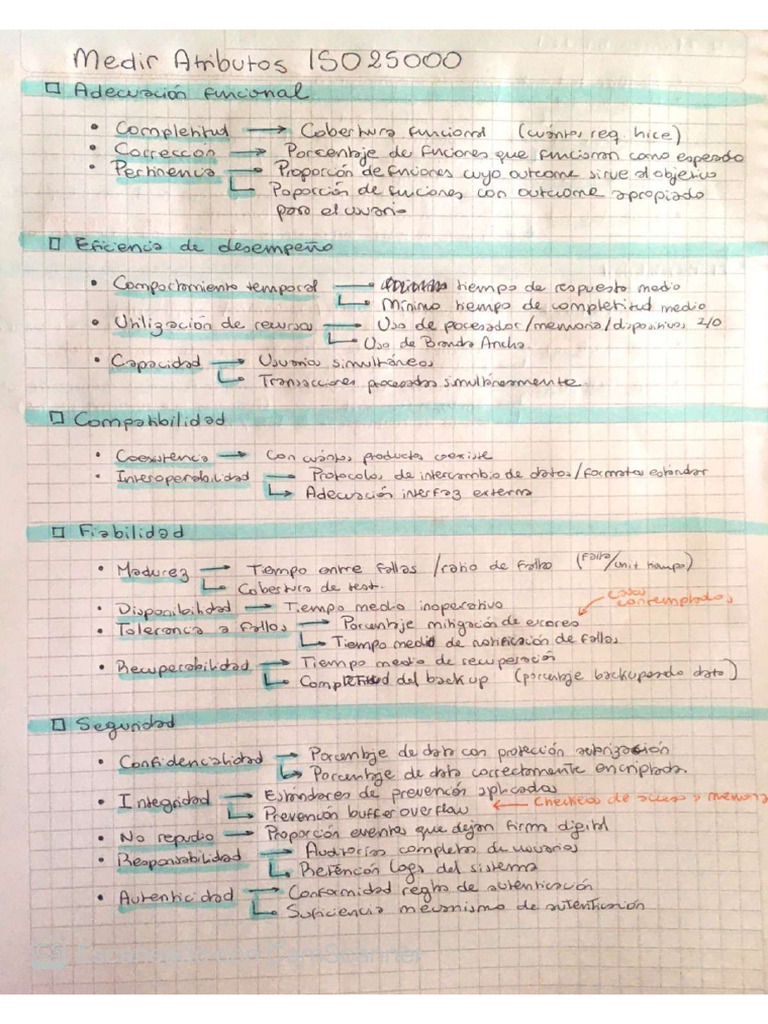 Medir Atributos ISO25000
□ Adecuación funcional
• Completitud → Cobertura funcional (cuántos req. hice)
• Corrección → Porcentaje de funciones que funcionan como esperado
• Pertinencia → Proporción de funciones cuyo outcome sirve al objetivo
↳ Poporción de funciones con outcome apropiado
para el usuario
□ Eficiencia de desempeño
• Comportamiento temporal → tiempo de respuesta medio
↳ Mínimo tiempo de completitud medio
• Utilización de recursos → Uso de pocesador/memoria/dispositivos I/O
↳ Uso de Banda Ancha
• Capacidad → Usuarios simultáneos
↳ Transacciones procesadas simultáneamente
□ Compatibilidad
• Coexistencia → Con cuántos productos coexiste
• Interoperabilidad → Protocolos de intercambio de datos/formatos estándar
↳ Adecuación interfaz externa
□ Fiabilidad
• Madurez → Tiempo entre fallas /ratio de fallo (falla/unit tiempo)
↳ Cobertura de test.
• Disponibilidad → Tiempo medio inoperativo
casos contemplados
• Tolerancia a fallos → Porcentaje mitigación de errores
↳ Tiempo medio de notificación de fallos
• Recuperabilidad → Tiempo medio de recuperación
↳ Completitud del backup (porcentaje backupeando data)
□ Seguridad
• Confidencialidad → Porcentaje de data con protección autorización
↳ Porcentaje de data correctamente encriptada.
• Integridad → Estándares de prevención aplicadas
↳ Prevención buffer overflow ← Checkeos de acceso a memoria
• No repudio → Proporción eventos que dejan firma digital
• Responsabilidad → Auditorías completas de usuarios
↳ Retención logs del sistema
• Autenticidad → Conformidad reglas de autenticación
↳ Suficiencia mecanismo de autenticación
CS Escaneado con CamScanner